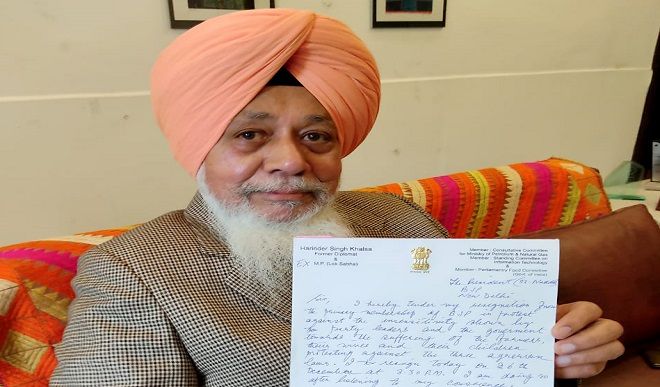 Harinder Singh Khalsa
Former Diplomat
EX M.P. (Lok Sabha)
Member : Consultative Committee
for Ministry of Petroleum & Natural Gas
Member : Standing Committee on
Information Technology
&
Member : Parliamentary Food Committee
(Govt. of India)
The President (Sh. Nadda)
BJP
New Delhi
Sir,
I hereby tender my resignation from
the primary membership of BJP in protest
against the insensitivity shown by
the party leaders and the government
towards the suffering of the farmers,
their wives and their children
protesting against the three agrarian
laws. I resign today on 26th
December at 2.30 P.M. I am doing so
after listening to my conscience